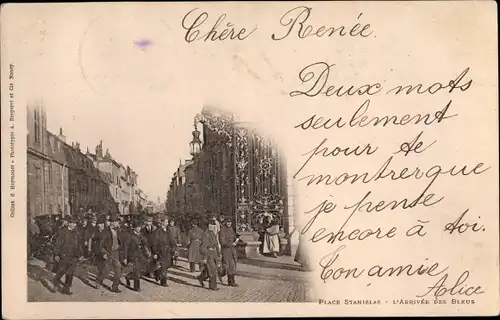 Chère Renée.
Deux mots
seulement
pour te
montrerque
je pense
encore à toi.
Ton amie
Alice
PLACE STANISLAS - L'ARRIVÉE DES BLEUS
Phototypie A. Bergeret et Cie Nancy